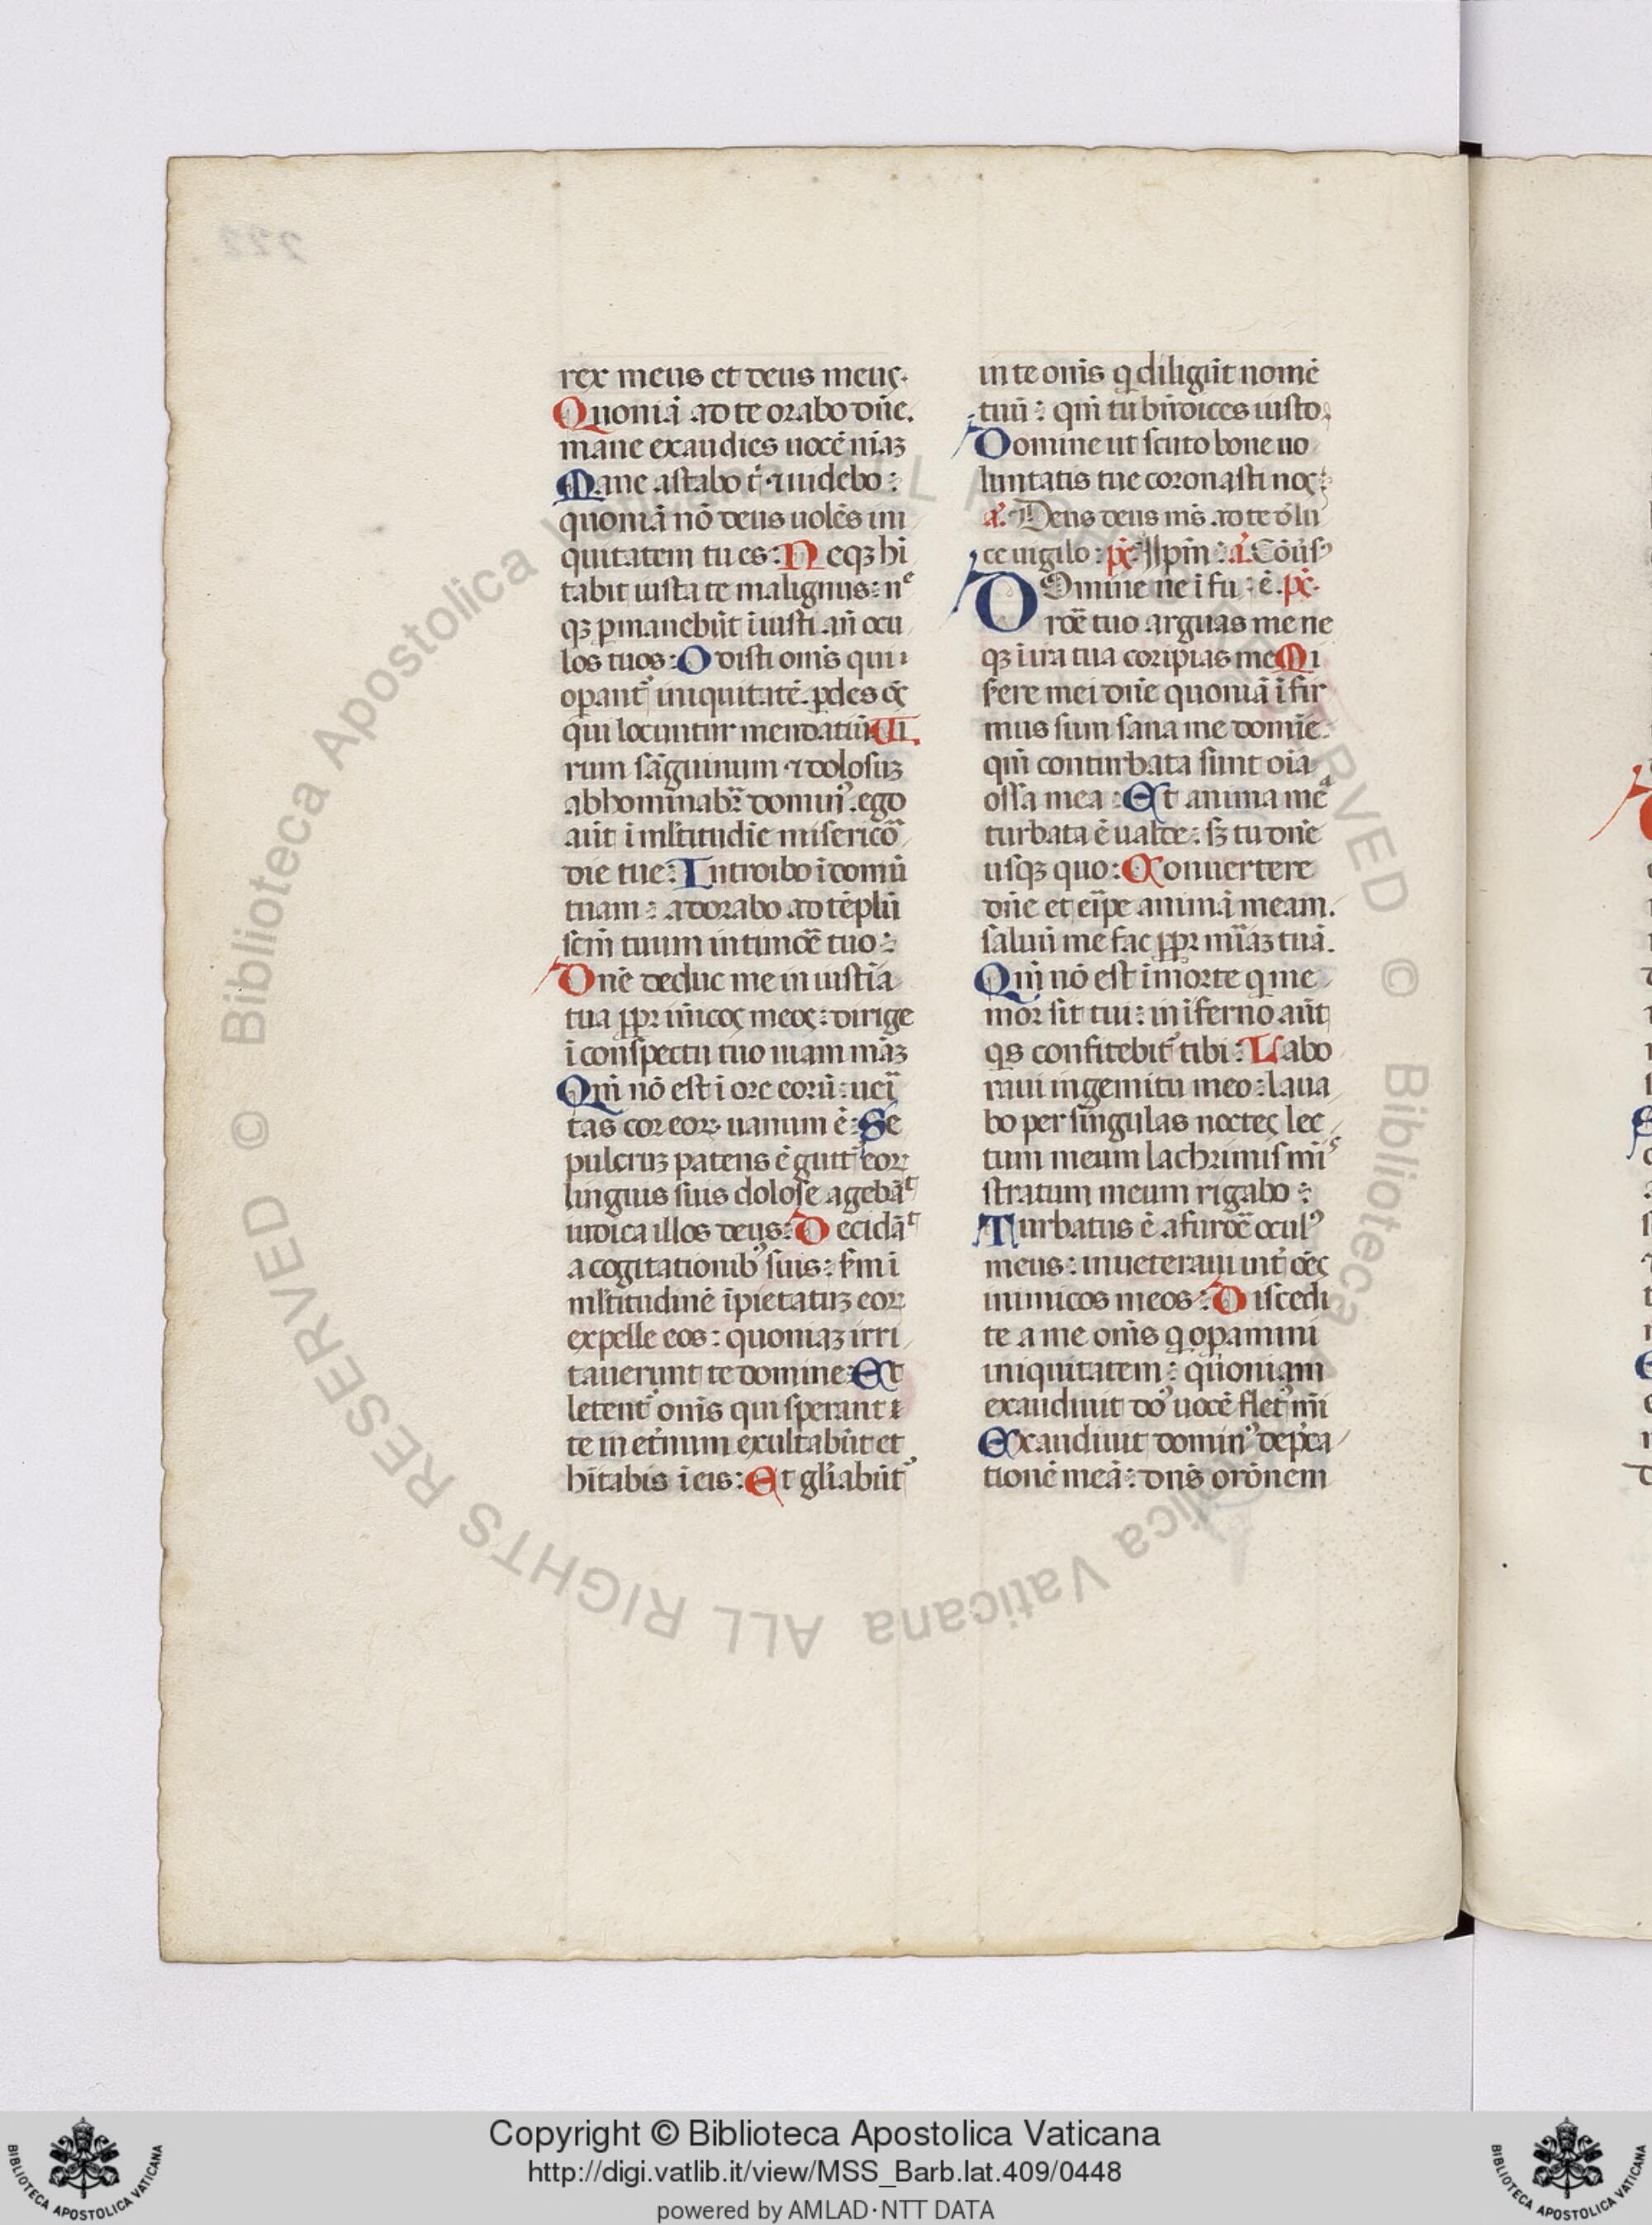 rex meus et deus meus.
Quoniā ad te orabo dn̄e.
mane exaudies uocē mēaʒ
Mane astabo t̄ ⁊ uidebo:
quoniā nō deus uolēs ini
quitatem tu es: Neqʒ hi
tabit iusta te malignus: nᵉ
qʒ ꝑmanebūt īiusti an̄ ocu
los tuos: Odisti om̄s qui
oꝑant᷑ iniquitatē. ꝑdes oēs
qui locuntur mendatiū Ui
rum sāguinum ⁊ dolosuʒ
abhominabr̄ domin᷒. ego
aūt ī ml̄titudīe miserico᷑
die tue: Introibo ī domū
tuam: adorabo ad tēplū
scm̄ tuum in timoē tuo:
Dn̄e deduc me in iustīa
tua ꝓpꝛ inīcos meos: dirige
ī conspectu tuo uiam māʒ
Qm̄ nō est ī ore eorū: ueī
tas cor eoꝝ uanum ē: Se
pulcruʒ patens ē gutt᷑ eoꝝ
linguis suis dolose agebāᵗ
iudica illos deus: Decidāᵗ
a cogitationib᷒ suis: ẜm ī
ml̄titudinē īpietatuʒ eoꝝ
expelle eos: quoniaʒ irri
tauerunt te domine: Et
letent᷑ om̄s qui sperant ī
te in et̄num exultabūt et
hītabis ī eis: Et gl̄iabūt᷑
in te om̄s q diligūt nomē
tuū: qm̄ tu bn̄dices iusto.
Domine ut scuto bone uo
luntatis tue coronasti nos:
a᷑. Deus deus ms̄ ad te d̄ lu
ce uigilo: ps̄. Ip̄m: a᷑. Cōūs᷒
DOmine ne ī fu: ē. ps̄.
roē tuo arguas me ne
qʒ ī ira tua coripias me Mi
sere mei dn̄e quoniā īfir
mus sum sana me domīe
qm̄ conturbata sunt oīa
ossa mea: Et anima meᵃ
turbata ē ualde: sʒ tu dn̄e
usqʒ quo: Conuertere
dn̄e et eīpe animā meam.
saluū me fac ꝓpꝛ mīaʒ tuā.
Qm̄ nō est ī morte q me
mor sit tui: in īferno aūt
qs confitebit᷑ tibi: Labo
raui in gemitu meo: laua
bo per singulas noctes lec
tum meum lachrimis mīˢ
stratum meum rigabo:
Turbatus ē a furoē ocul᷒
meus: inueteraui int̄ oēs
inimicos meos: Discedi
te a me om̄s q oꝑamini
iniquitatem: quoniam
exaudiuit do᷒ uocē flet᷒ mī
Exaudiuit domin᷒ dep̄ca
tionē meā: dn̄s orōnem
222
© Biblioteca Apostolica Vaticana ALL RIGHTS RESERVED © Biblioteca Apostolica Vaticana ALL RIGHTS RESERVED
BIBLIOTECA APOSTOLICA VATICANA
Copyright © Biblioteca Apostolica Vaticana
http://digi.vatlib.it/view/MSS_Barb.lat.409/0448
powered by AMLAD·NTT DATA
BIBLIOTECA APOSTOLICA VATICANA